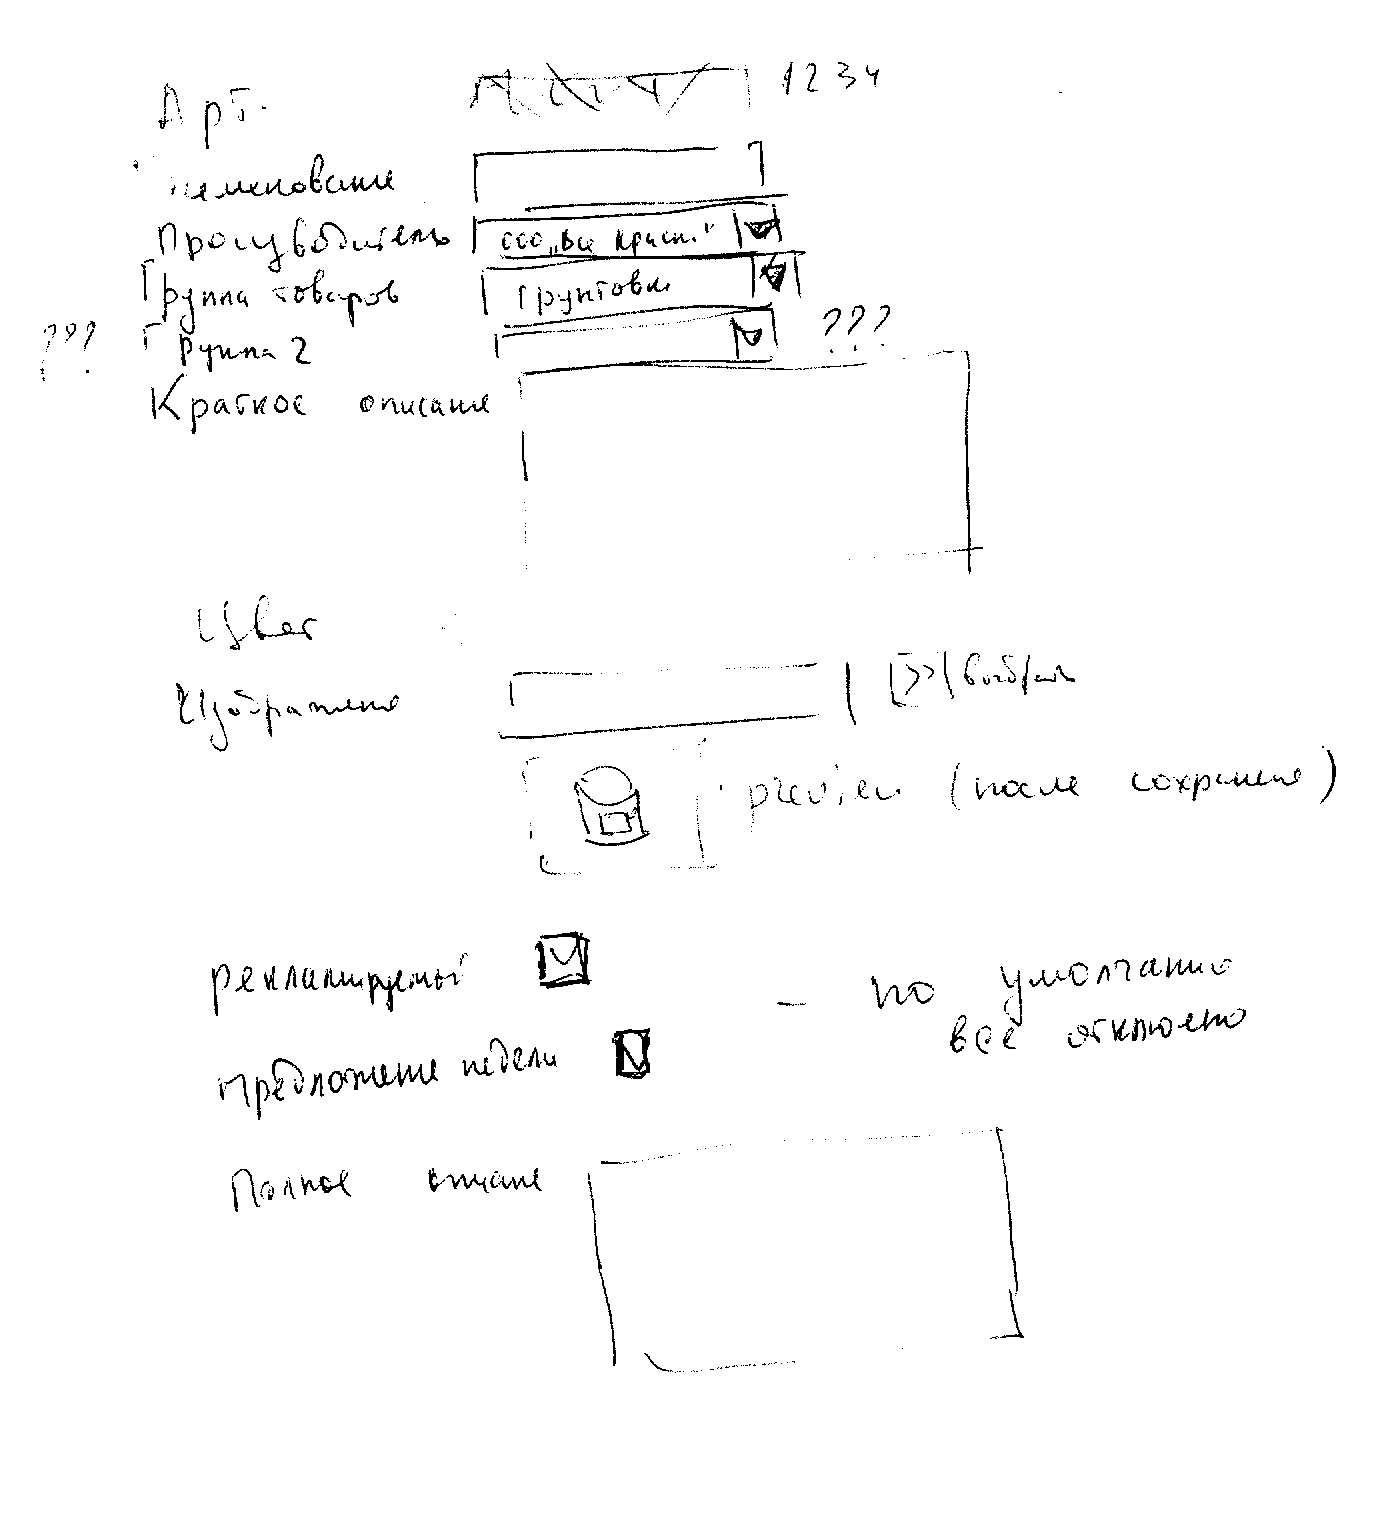 Арт. 1234
именование
Производитель ООО „Все краск."
Группа товаров Грунтовки
??? Группа 2 ???
Краткое описание
Цвет
Изображение выбрать
preview (после сохранения)
рекламируемый
— по умолчанию
все отключено
предложение недели
Полное описание